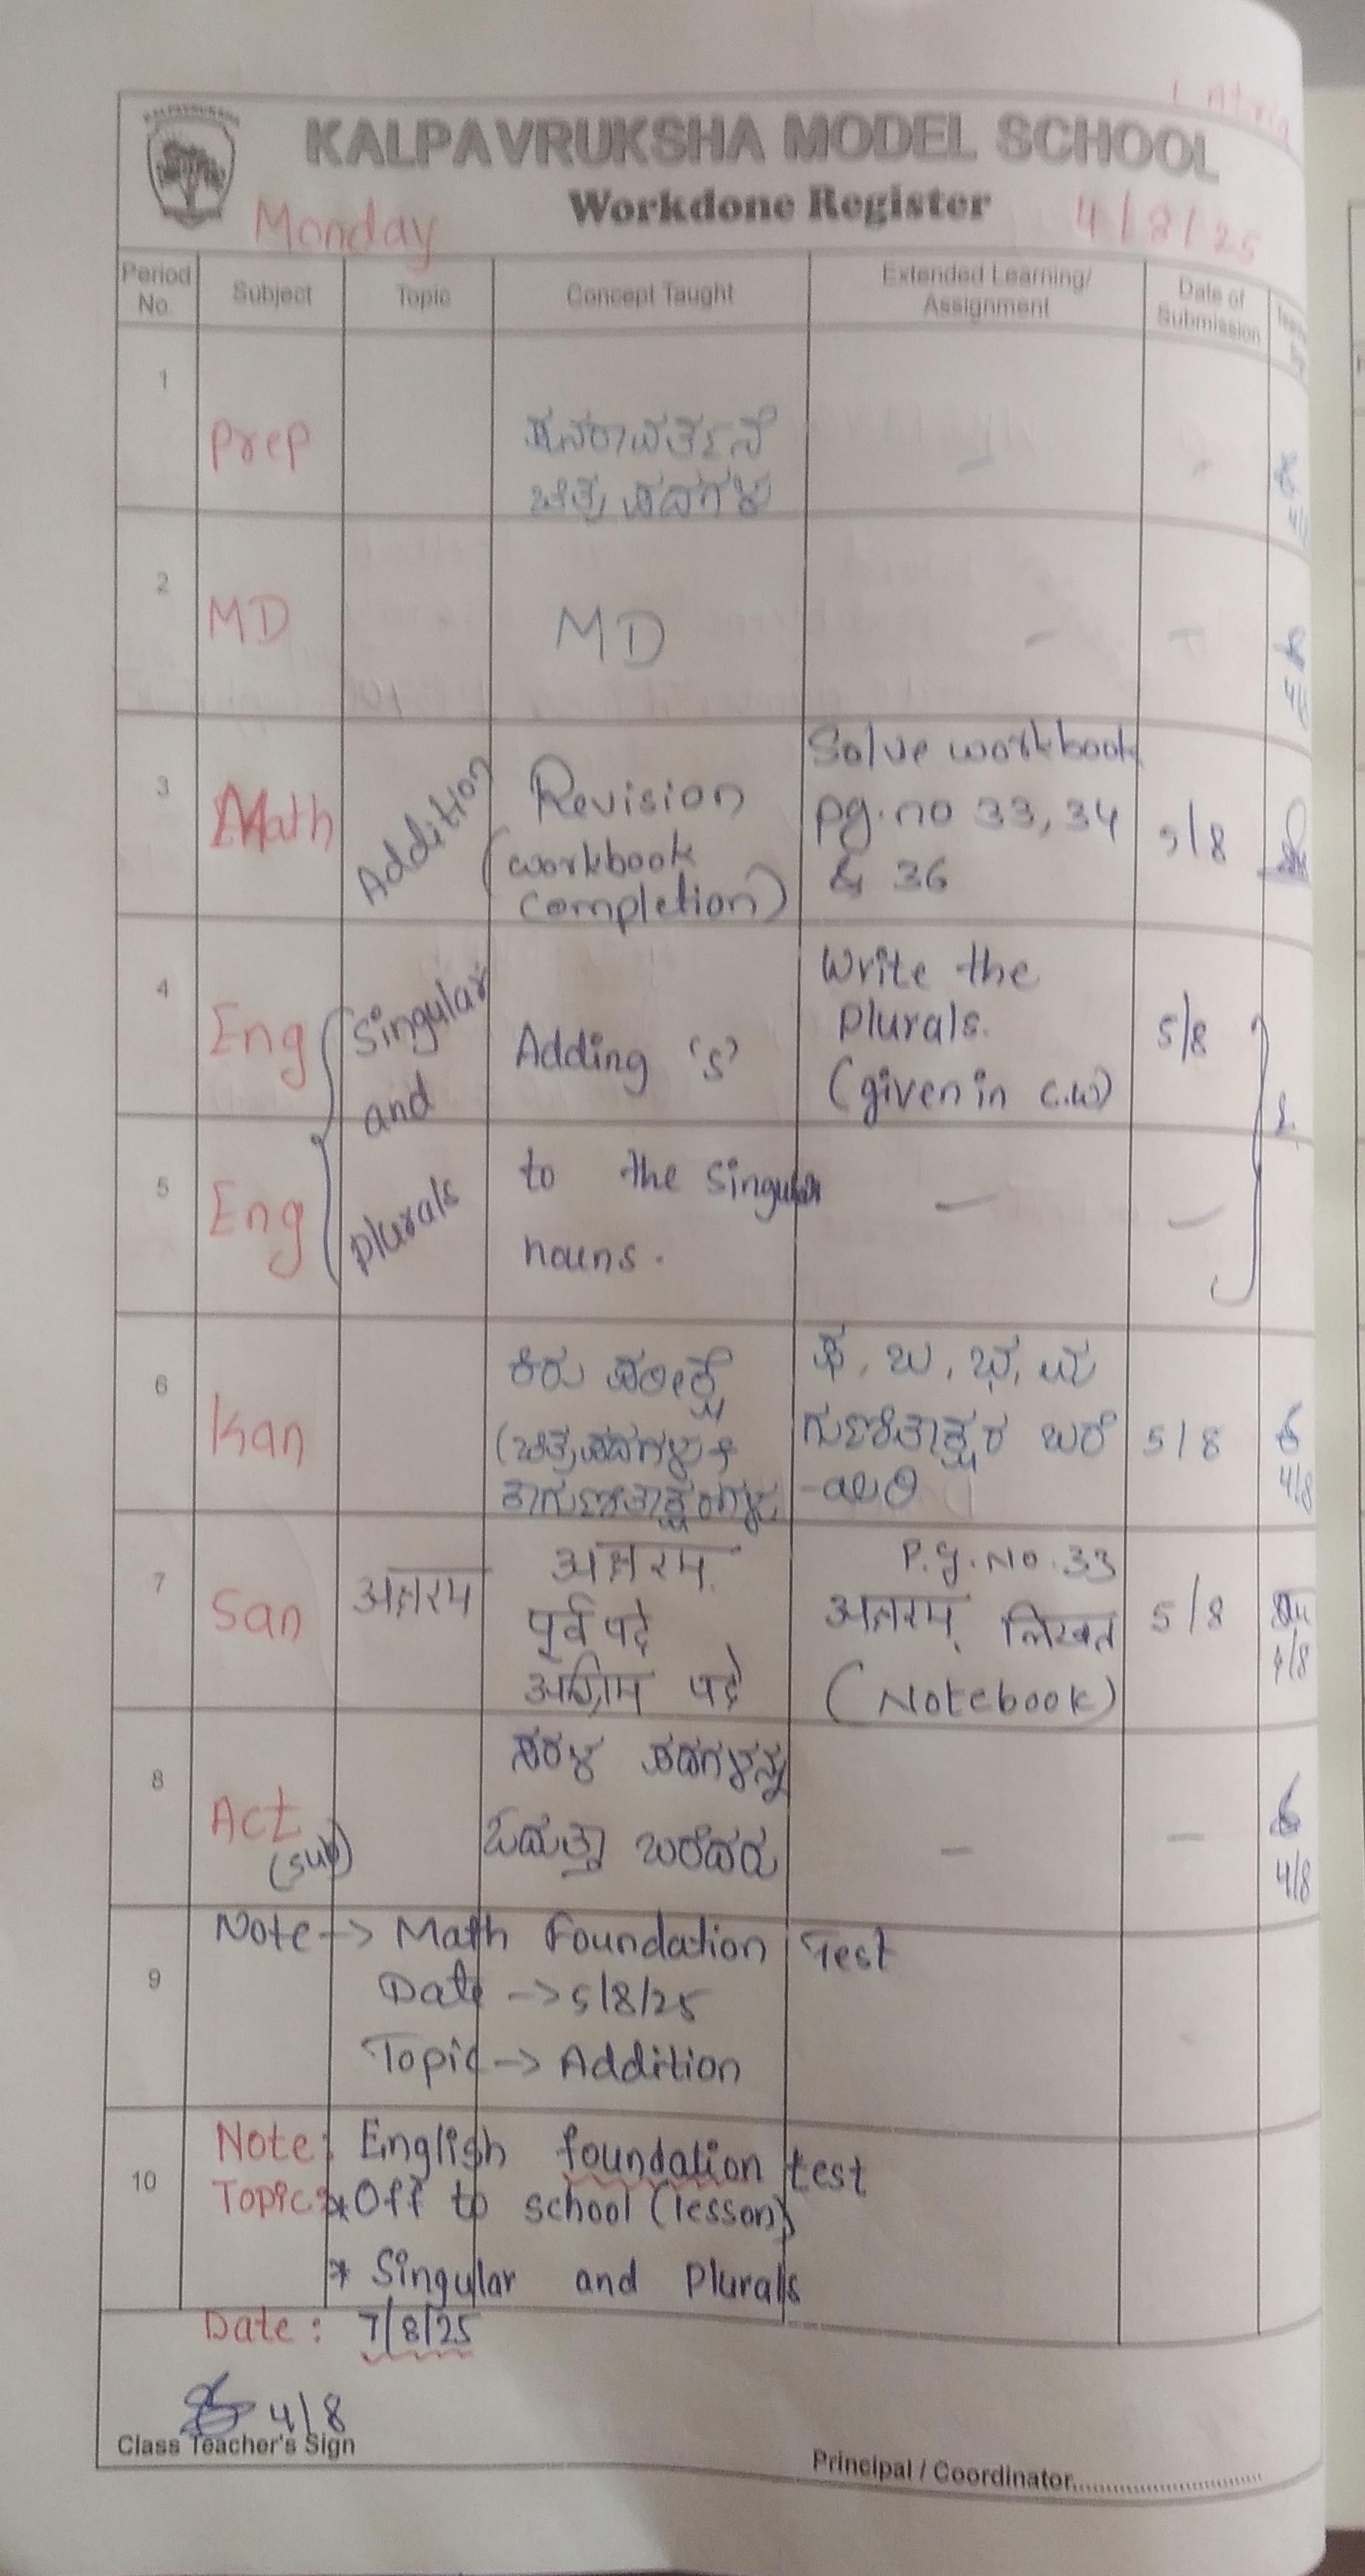 KALPAVRUKSHA MODEL SCHOOL
Workdone Register
Monday 4/8/25
Period No. Subject Topic Concept Taught Extended Learning/ Assignment Date of Submission
1 Prep ಪುನರಾವರ್ತನೆ — -
ಚಿತ್ರ ಪದಗಳು
4/8
2 MD MD — —
4/8
3 Math Addition Revision Solve workbook
(workbook pg.no 33, 34 5/8
completion) & 36
4 Eng Singular Adding 's' Write the
and Plurals. 5/8
(given in c.w)
5 Eng Plurals to the Singular — —
nouns.
6 Kan ಕಿರು ಪರೀಕ್ಷೆ ಫ, ಬ, ಭ, ಮ
(ಚಿತ್ರ ಪದಗಳು + ಗುಣಿತಾಕ್ಷರ ಬರೆ 5/8
ಕಾಗುಣಿತಾಕ್ಷರಗಳು -ಯಿರಿ 4/8
7 San अन्तरम् अन्तरम् P.g.No.33
पूर्व पदे अन्तरम् लिखत 5/8
अग्रिम पदे (Notebook) 4/8
8 Act ಸರಳ ಪದಗಳನ್ನು
(sub) ಓದುತ್ತಾ ಬರೆದರು — — 4/8
9 Note -> Math Foundation Test
Date -> 5/8/25
Topic -> Addition
10 Note: English foundation test
Topic: * Off to school (lesson)
* Singular and Plurals
Date: 7/8/25
4/8
Class Teacher's Sign
Principal / Coordinator